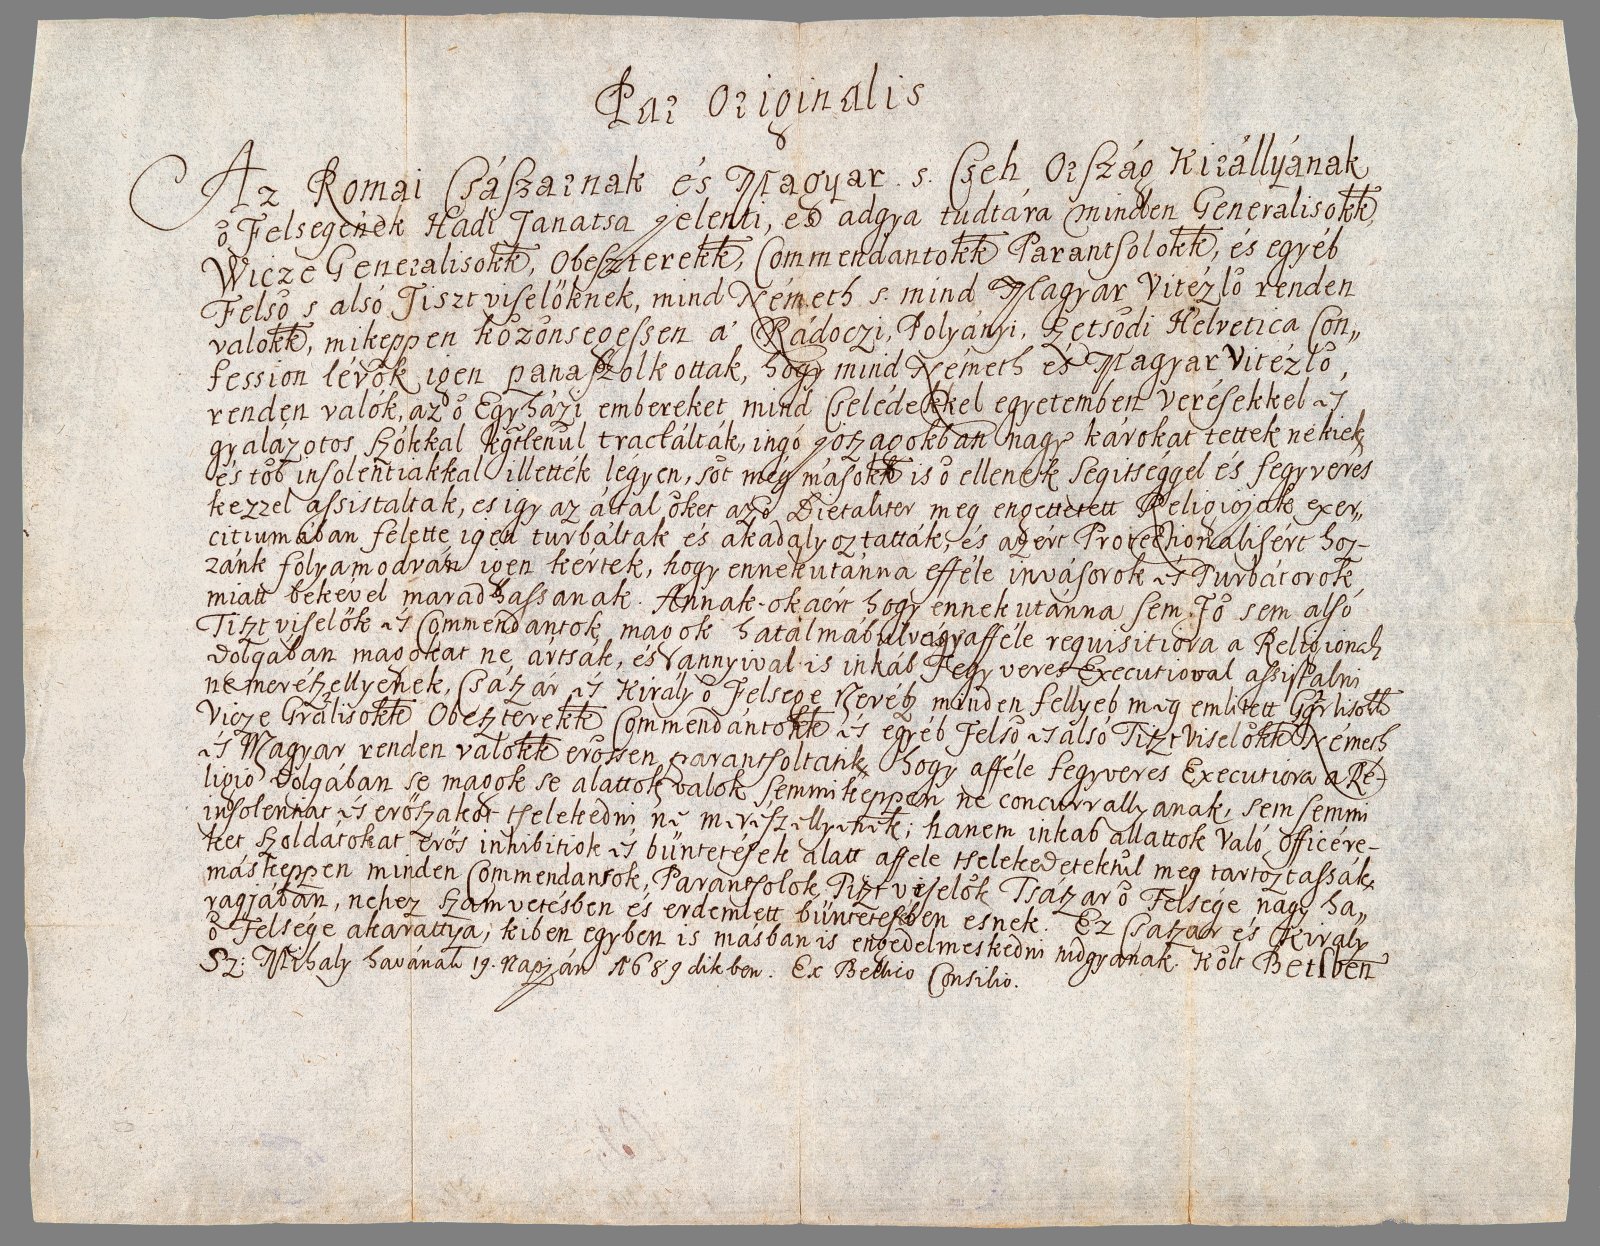 Par Originalis
Az Romai Császarnak és Magyar. s. Cseh Orszag Királlyának
ő Felsegének Hadi Tanatsa jelenti, es adgya tudtára minden Generalisokk,
Wicze Generalisokk, Obeszterekk, Commendantokk Parantsolokk, és egyéb
Felső s alsó Tisztviselőknek, mind Németh s. mind Magyar Vitézlő renden
valokk, mikeppen közönsegessen a' Rádoczi, Polyányi, Zetsődi Helvetica Con„
fession lévők igen panaszolkottak, hogy mind Németh és Magyar Vitézlő,
renden valók, az ő Egyházi embereket mind Cselédekkel egyetemben verésekkel és
gyalázotos szókkal kgtlenül tractálták, ingó joszagokban nagy károkat tettek nékiek
és több insolentiakkal illették légyen, sőt még másokk is ő ellenek segitséggel és fegyveres
kezzel assistaltak, es igy az által őket az ő Dietaliter meg engettetett Religiojok exer„
citiumában felette igen turbáltak és akadályoztatták, és azért Protectionalisért hoz-
zánk folyamodván igen kértek, hogy ennekutánna efféle invásorok és Turbátorok
miatt bekével maradhassanak. Annak-okaért hogy ennekutánna sem Fő sem alsó
Tisztviselők és Commendantok magok hatálmábul vagy afféle requisitiora a Religionak
dolgában magokat ne ártsák, és annyival is inkáb Fegyveres Executioval assistalni
ne merészellyenek, Császár és Király ő Felsege Nevéb minden fellyeb meg emlitett Grlisokk
Vicze Grálisokk Obeszterekk Commendántokk és egyéb Felső és alsó Tisztviselőkk Nemeth
és Magyar renden valokk erőssen parantsoltatik, hogy afféle fegyveres Executiora a Re-
ligio dolgában se magok se alattok valok semmiképpen ne concurrallyanak, sem semmi
insolentiat és erőszakot tselekedni ne merészellyenek; hanem inkab allattok való officére-
ket szoldatokat erős inhibitiok és büntetések alatt affele tselekedetektül meg tartoztassák,
másképpen minden Commendantok, Parantsolok, Tisztviselők Tsászar ő Felsége nagy ha„
ragjában, nehez szamvetésben és erdemlett büntetesben esnek. Ez Csaszar és Kiraly
ő Felsége akarattya, kiben egyben is másban is engedelmeskedni tudgyanak. Költ Betsben
Sz: Mihaly havának 19. Napján 1689 dikben. Ex Bellico Consilio.